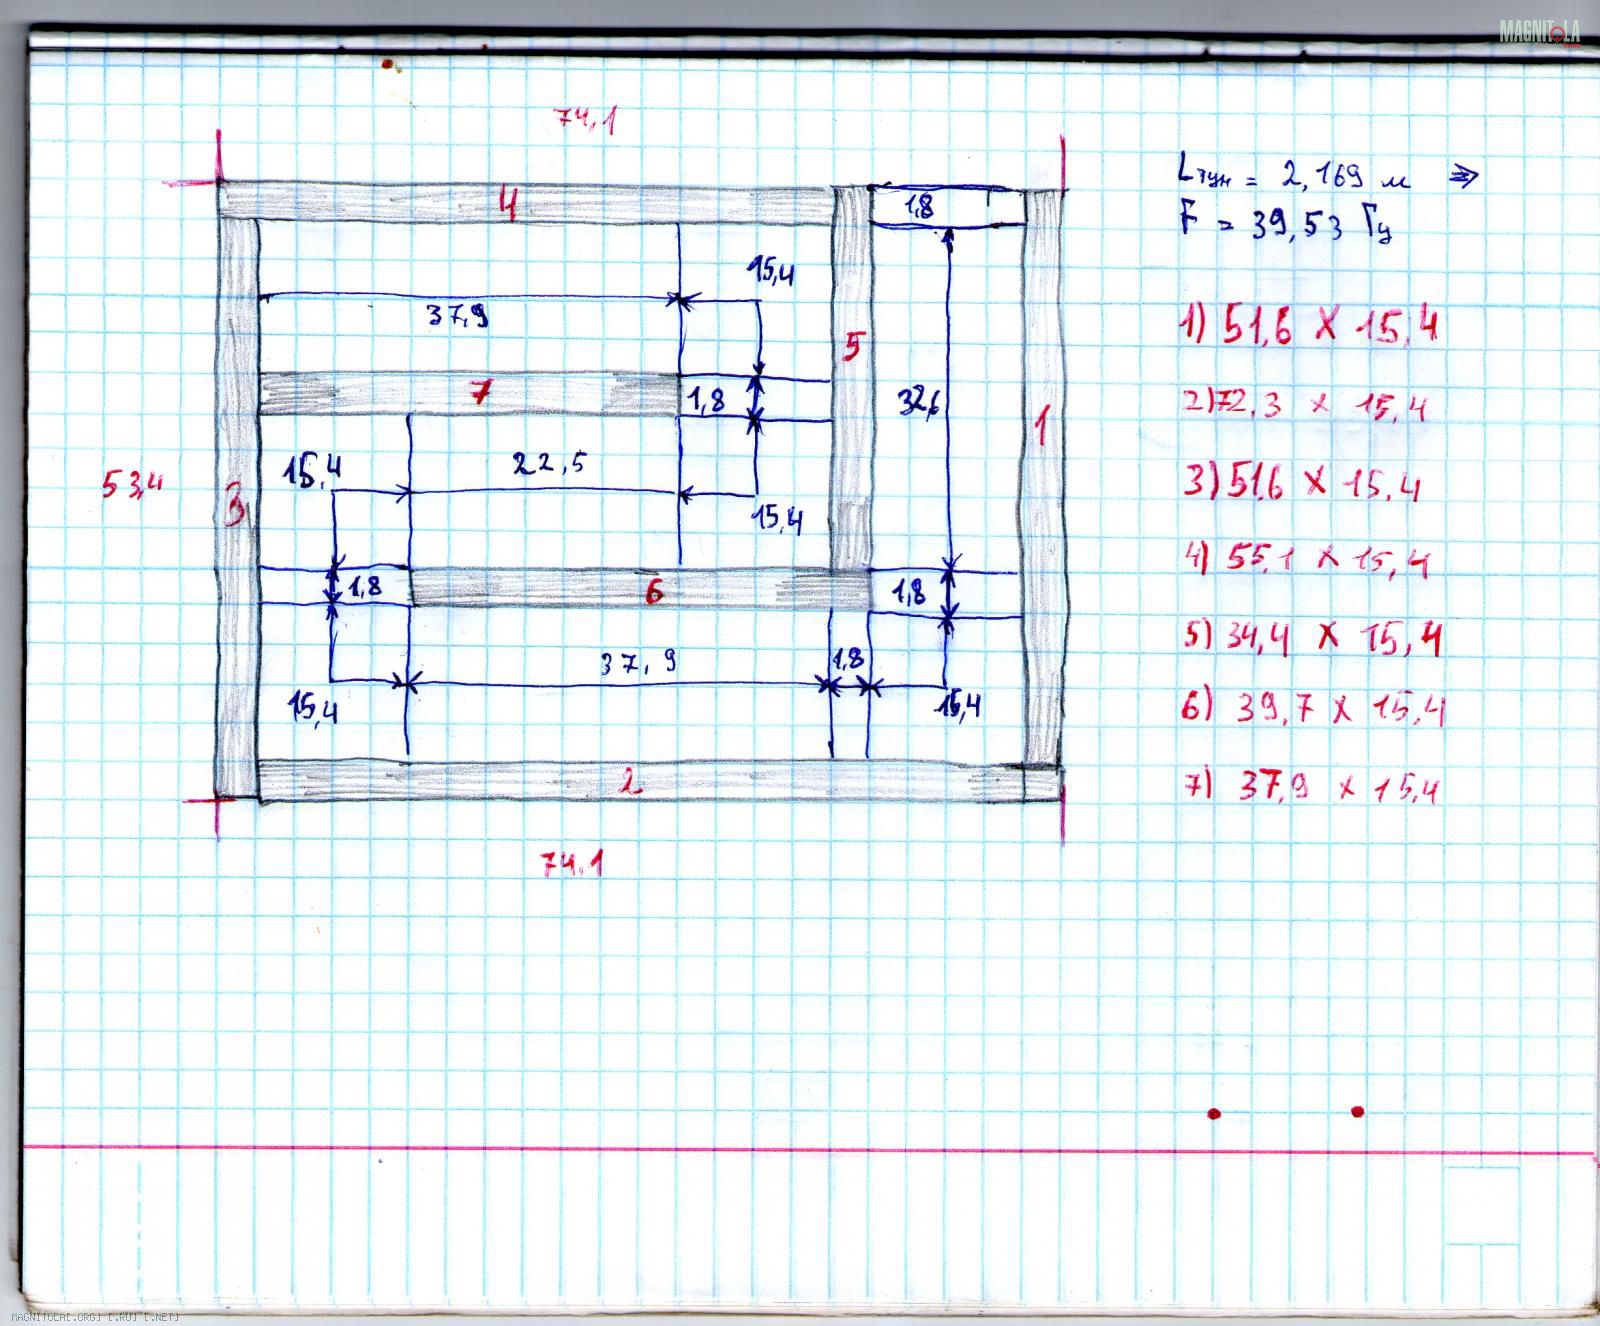 MAGNITOLA
74,1
Lтун = 2,169 м
F = 39,53 Гц
4
1,8
15,4
37,9
1) 51,6 x 15,4
5
7
1,8
32,6
2) 72,3 x 15,4
1
15,4
22,5
53,4
3
15,4
3) 51,6 x 15,4
4) 55,1 x 15,4
1,8
6
1,8
5) 34,4 x 15,4
37,9
1,8
15,4
15,4
6) 39,7 x 15,4
2
7) 37,9 x 15,4
74,1
MAGNITOLA[.ORG] [.RU] [.NET]